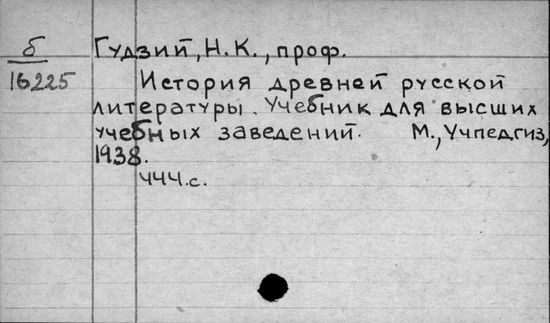 б
16225
Гудзий, Н.К., проф.
История древней русской
литературы. Учебник для высших
учебных заведений. М., Учпедгиз,
1938.
444.с.